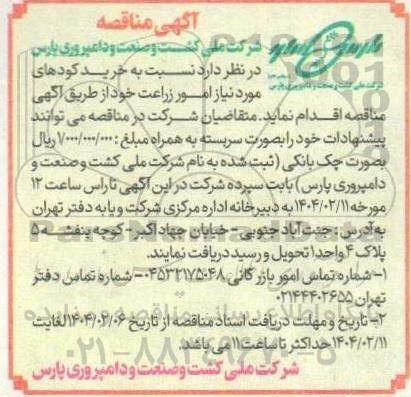 آگهی مناقصه
شرکت ملی کشت و صنعت و دامپروری پارس
شرکت ملی کشت و صنعت و دامپروری پارس
در نظر دارد نسبت به خرید کودهای
مورد نیاز امور زراعت خود از طریق آگهی
مناقصه اقدام نماید. متقاضیان شرکت در مناقصه می توانند
پیشنهادات خود را بصورت سربسته به همراه مبلغ : ۷/۰۰۰/۰۰۰/۰۰۰ ریال
بصورت چک بانکی ( ثبت شده به نام شرکت ملی کشت و صنعت و
دامپروری پارس ) بابت سپرده شرکت در این آگهی تا راس ساعت ۱۲
مورخه ۱۴۰۴/۰۲/۱۱ به دبیرخانه اداره مرکزی شرکت و یا به دفتر تهران
به آدرس : جنت آباد جنوبی - خیابان جهاد اکبر - کوچه بنفشه ۵
پلاک ۴ واحد ۱ تحویل و رسید دریافت نمایند.
۱- شماره تماس امور بازرگانی ۰۴۵۳۲۱۷۵۰۴۸ - شماره تماس دفتر
تهران ۰۲۱۴۴۴۰۲۶۵۵
۲- تاریخ و مهلت دریافت اسناد مناقصه از تاریخ ۱۴۰۴/۰۲/۰۶ لغایت
۱۴۰۴/۰۲/۱۱ حداکثر تا ساعت ۱۱ می باشد.
۰۲۱-۸۸۳۴۹۶۷۰-۵
شرکت ملی کشت و صنعت و دامپروری پارس